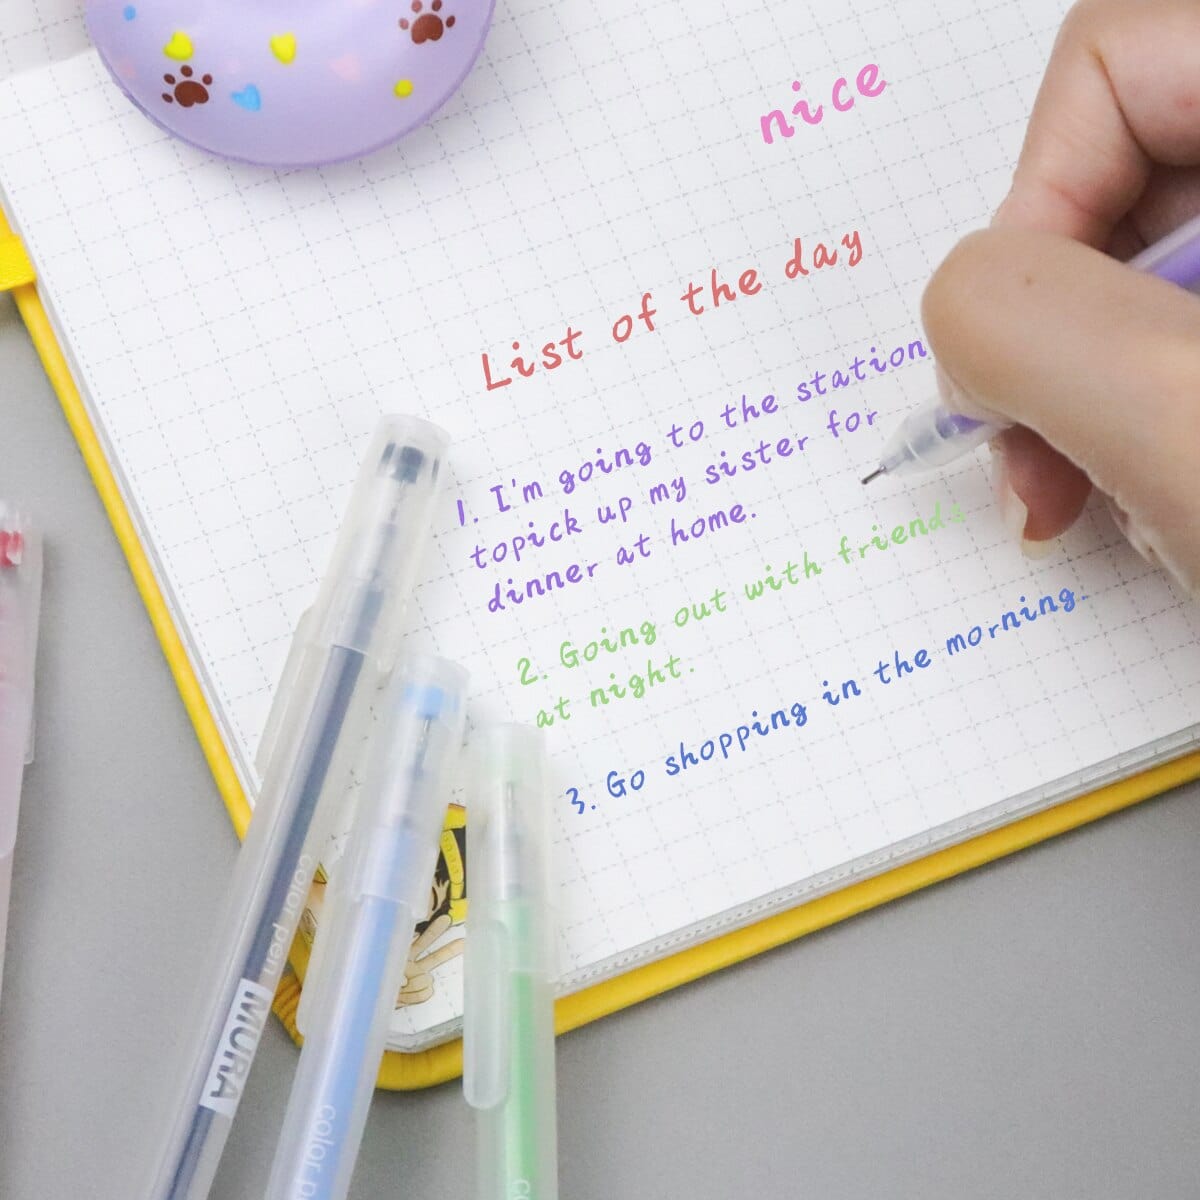 nice
List of the day
1. I'm going to the station
topick up my sister for
dinner at home.
2. Going out with friends
at night.
3. Go shopping in the morning.
color pen MURA
color pe
co